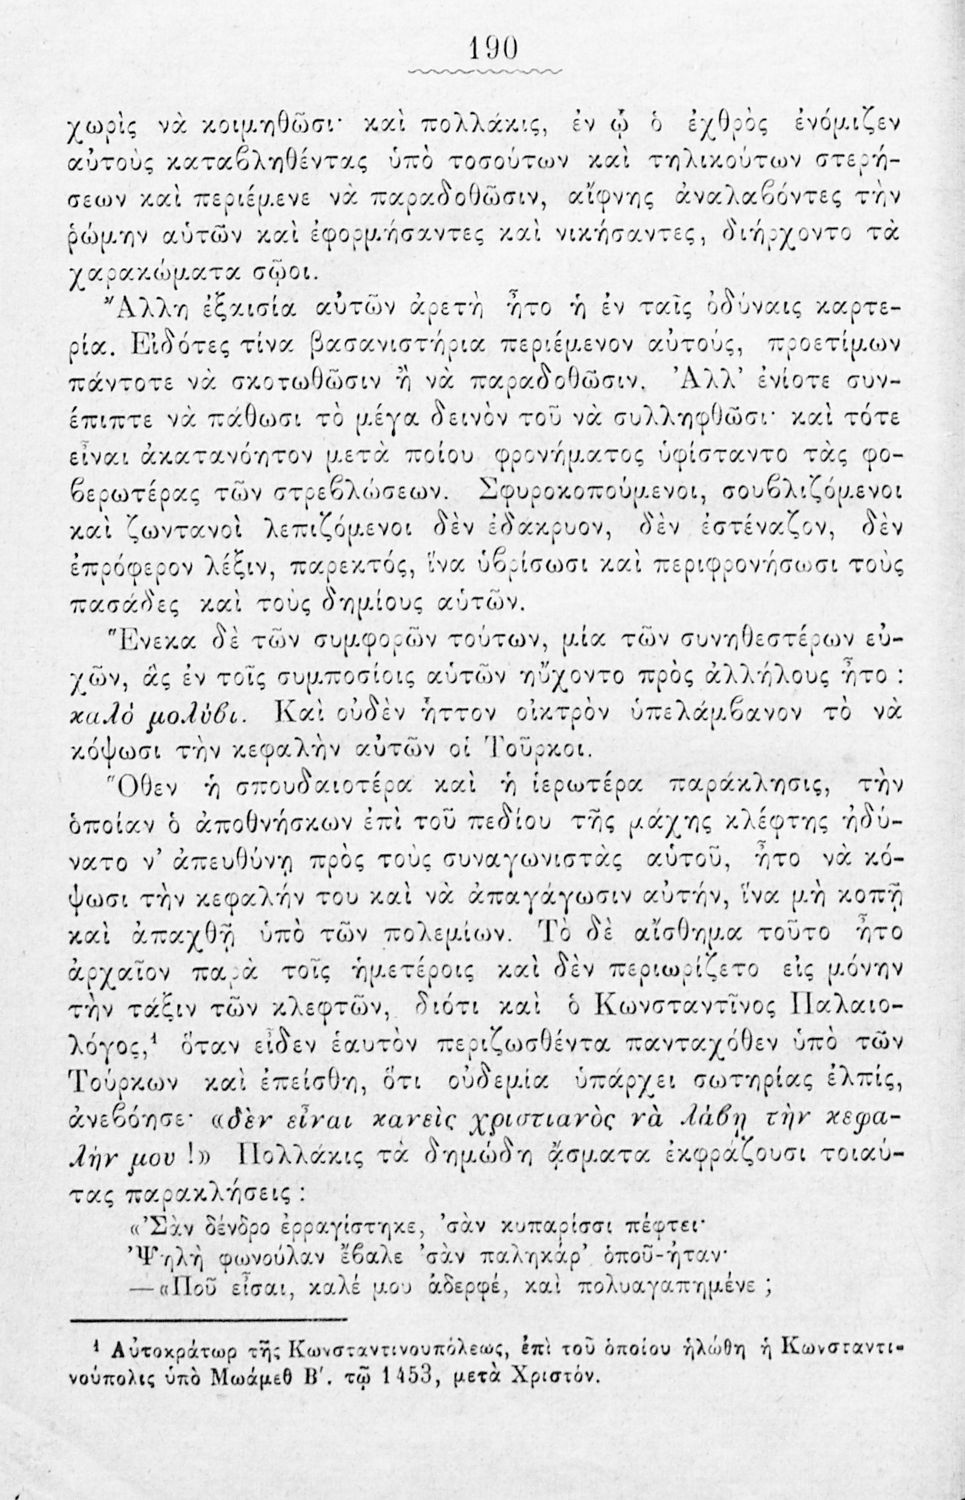 190
χωρὶς νὰ κοιμηθῶσι· καὶ πολλάκις, ἐν ᾧ ὁ ἐχθρὸς ἐνόμιζεν
αὐτοὺς καταβληθέντας ὑπὸ τοσούτων καὶ τηλικούτων στερή-
σεων καὶ περιέμενε νὰ παραδοθῶσιν, αἴφνης ἀναλαβόντες τὴν
ῥώμην αὑτῶν καὶ ἐφορμήσαντες καὶ νικήσαντες, διήρχοντο τὰ
χαρακώματα σῷοι.
Ἄλλη ἐξαισία αὐτῶν ἀρετὴ ἦτο ἡ ἐν ταῖς ὀδύναις καρτε-
ρία. Εἰδότες τίνα βασανιστήρια περιέμενον αὐτούς, προετίμων
πάντοτε νὰ σκοτωθῶσιν ἢ νὰ παραδοθῶσιν. Ἀλλ’ ἐνίοτε συν-
έπιπτε νὰ πάθωσι τὸ μέγα δεινὸν τοῦ νὰ συλληφθῶσι· καὶ τότε
εἶναι ἀκατανόητον μετὰ ποίου φρονήματος ὑφίσταντο τὰς φο-
βερωτέρας τῶν στρεβλώσεων. Σφυροκοπούμενοι, σουβλιζόμενοι
καὶ ζωντανοὶ λεπιζόμενοι δὲν ἐδάκρυον, δὲν ἐστέναζον, δὲν
ἐπρόφερον λέξιν, παρεκτός, ἵνα ὑβρίσωσι καὶ περιφρονήσωσι τοὺς
πασάδες καὶ τοὺς δημίους αὑτῶν.
Ἕνεκα δὲ τῶν συμφορῶν τούτων, μία τῶν συνηθεστέρων εὐ-
χῶν, ἃς ἐν τοῖς συμποσίοις αὑτῶν ηὔχοντο πρὸς ἀλλήλους ἦτο :
καλὸ μολύβι. Καὶ οὐδὲν ἧττον οἰκτρὸν ὑπελάμβανον τὸ νὰ
κόψωσι τὴν κεφαλὴν αὐτῶν οἱ Τοῦρκοι.
Ὅθεν ἡ σπουδαιοτέρα καὶ ἡ ἱερωτέρα παράκλησις, τὴν
ὁποίαν ὁ ἀποθνήσκων ἐπὶ τοῦ πεδίου τῆς μάχης κλέφτης ἠδύ-
νατο ν’ ἀπευθύνῃ πρὸς τοὺς συναγωνιστὰς αὑτοῦ, ἦτο νὰ κό-
ψωσι τὴν κεφαλήν του καὶ νὰ ἀπαγάγωσιν αὐτήν, ἵνα μὴ κοπῇ
καὶ ἀπαχθῇ ὑπὸ τῶν πολεμίων. Τὸ δὲ αἴσθημα τοῦτο ἦτο
ἀρχαῖον παρὰ τοῖς ἡμετέροις καὶ δὲν περιωρίζετο εἰς μόνην
τὴν τάξιν τῶν κλεφτῶν, διότι καὶ ὁ Κωνσταντῖνος Παλαιο-
λόγος,¹ ὅταν εἶδεν ἑαυτὸν περιζωσθέντα πανταχόθεν ὑπὸ τῶν
Τούρκων καὶ ἐπείσθη, ὅτι οὐδεμία ὑπάρχει σωτηρίας ἐλπίς,
ἀνεβόησε· «δὲν εἶναι κανεὶς χριστιανὸς νὰ λάβῃ τὴν κεφα-
λήν μου !» Πολλάκις τὰ δημώδη ᾄσματα ἐκφράζουσι τοιαύ-
τας παρακλήσεις :
«Σὰν δένδρο ἐρραγίστηκε, ’σὰν κυπαρίσσι πέφτει·
Ψηλὴ φωνούλαν ἔβαλε ’σὰν παληκάρ’ ὁποῦ-ἦταν·
—«Ποῦ εἶσαι, καλέ μου ἀδερφέ, καὶ πολυαγαπημένε ;
¹ Αὐτοκράτωρ τῆς Κωνσταντινουπόλεως, ἐπὶ τοῦ ὁποίου ἡλώθη ἡ Κωνσταντι-
νούπολις ὑπὸ Μωάμεθ Β΄. τῷ 1453, μετὰ Χριστόν.